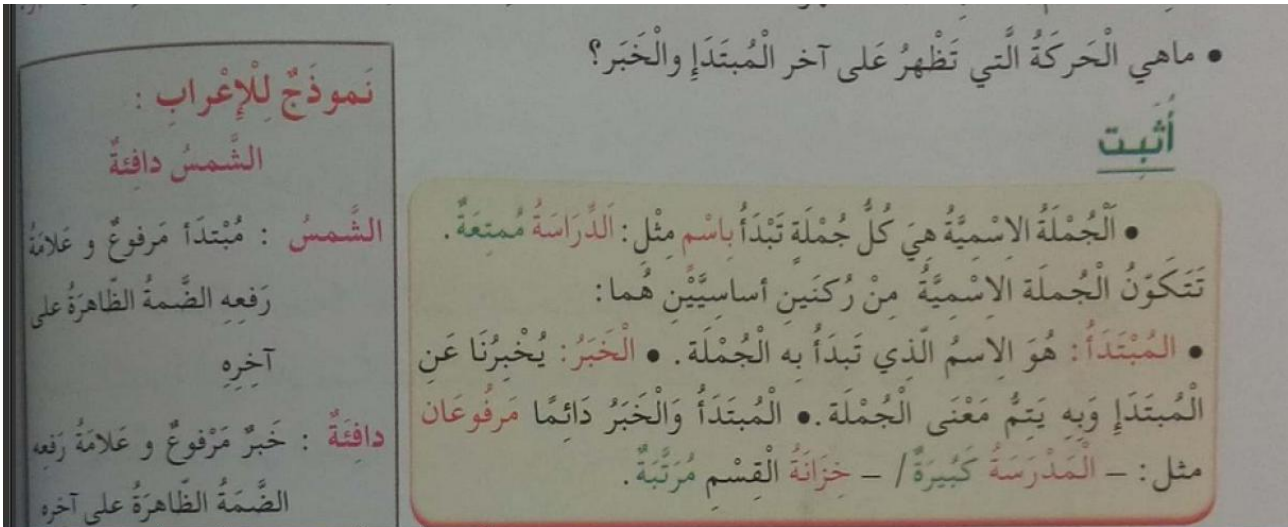 • ماهي الْحَركَةُ الَّتي تَظْهرُ عَلى آخر الْمُبتَدَإِ والْخَبَر؟
أُثبِت
• اَلْجُمْلَةُ الاِسْمِيَّةُ هِيَ كُلُّ جُمْلَةٍ تَبْدَأُ بِاسْم مِثْلِ: اَلدِّرَاسَةُ مُمتِعَةٌ.
تَتَكَوّنُ الْجُملَة الاِسْمِيَّةُ مِنْ رُكنَينِ أساسِيَّيْنِ هُما:
• المُبْتَدَأُ: هُوَ الاِسمُ الّذِي تَبدَأُ بِه الْجُمْلَة. • الْخَبَرُ: يُخْبِرُنَا عَنِ
الْمُبتَدَإِ وَبِه يَتِمُّ مَعْنَى الْجُمْلَة. • الْمُبتَدَأُ وَالْخَبَرُ دَائِمًا مَرفُوعَان
مثل: – الْمَدْرَسَةُ كَبُيرَةٌ / – خِزَانَةُ الْقِسْمِ مُرَتَّبَةٌ.
نَموذَجٌ لِلْإِعْرابِ :
الشَّمسُ دافِئةٌ
الشَّمسُ : مُبْتدَأ مَرفوعٌ و عَلامَةُ
رَفعِهِ الضَّمةُ الظّاهرَةُ على
آخِرِهِ
دافِئَةٌ : خَبرٌ مَرْفوعٌ و عَلامَةُ رَفعِه
الضَّمَةُ الظّاهرَةُ على آخره